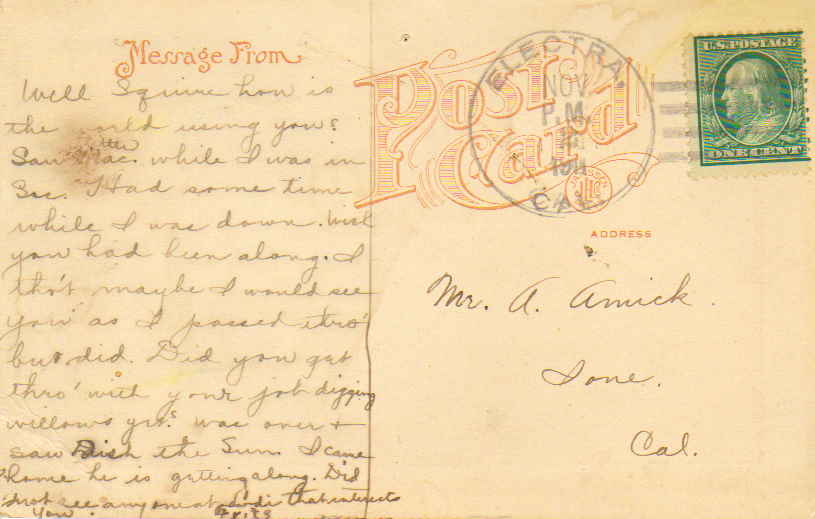 Message From
Well Squire how is
the world using you?
Saw Mac. while I was in
Sac. Had some time
while I was down. Wish
you had been along. I
tho't maybe I would see
you as I passed thro'
but did. Did you get
thro' with your job digging
willows yet? Was over +
saw Dick the Sun. I came
home he is getting along. Did
not see any one at Lodi that interests
you.
Fritz
Post Card
ELECTRA,
NOV
P.M.
1911
CAL.
U.S. POSTAGE
ONE CENT
ADDRESS
Mr. A. Amick.
Ione.
Cal.